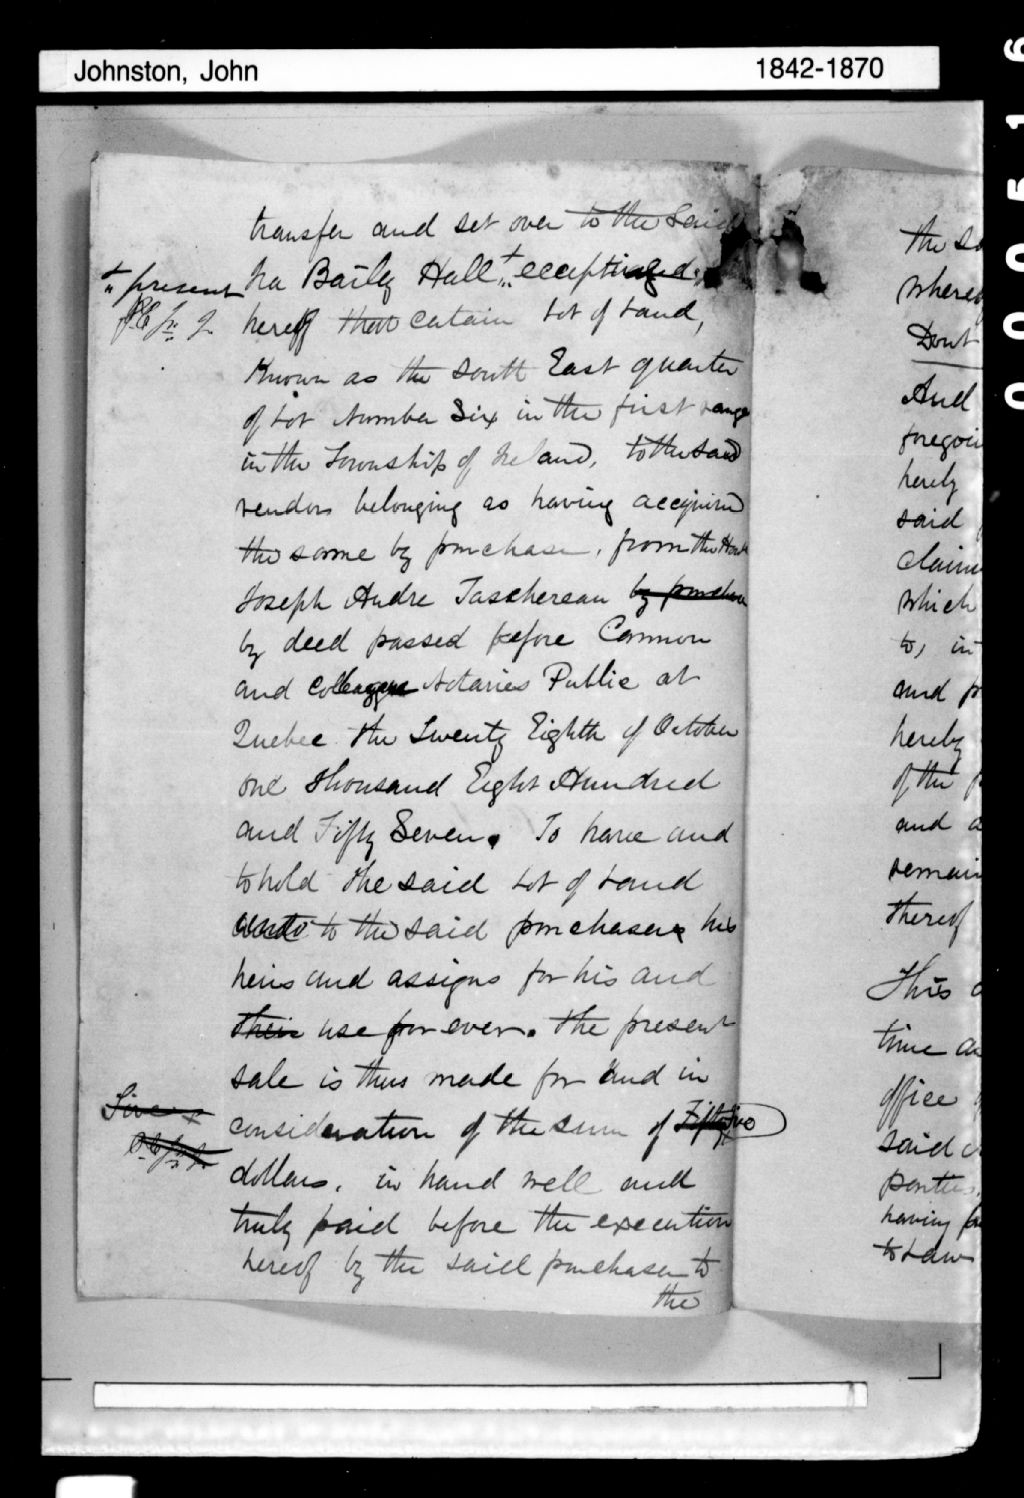 Johnston, John 1842-1870
000516
transfer and set over to the said
Ira Baily Hall + accepting
+ present
hereof that certain Lot of Land,
Known as the South East quarter
of Lot Number Six in the first range
in the Township of Ireland, to the said
vendor belonging as having accquired
the same by purchase, from the Honble
Joseph Andre Taschereau by purchase
by deed passed before Cannon
and Colleague Notaries Public at
Quebec the Twenty Eighth of October
one thousand Eight Hundred
and Fifty Seven. To have and
to hold the said Lot of Land
to the said purchaser his
heirs and assigns for his and
their use for ever. The present
sale is thus made for and in
consideration of the sum of Fifty
dollars, in hand well and
truly paid before the execution
hereof by the said purchaser to
the
the
Dont
And
hereby
said
which
to, in
and
hereby
of the
and
thereof
This
time
office
said
having
to Law